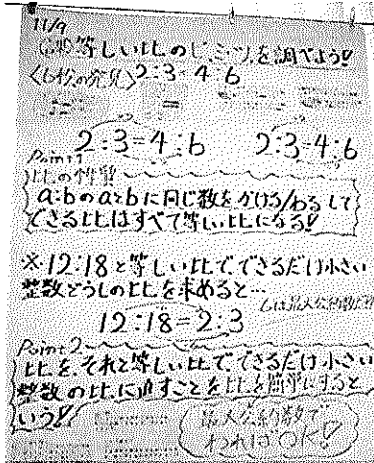 11/9
等しい比のヒミツを調べよう!!
の発見〉2:3=4:6
=
2:3=4:6 2:3=4:6
Point1
比の性質
a:bのaとbに同じ数をかける/わるして
できる比はすべて等しい比になる!!
※12:18と等しい比で、できるだけ小さい
整数どうしの比を求めると…
6は最大公約数
12:18=2:3
Point2
比を、それと等しい比で、できるだけ小さい
整数の比に直すことを比を簡単にすると
いう!!
最大公約数で
わればOK!!